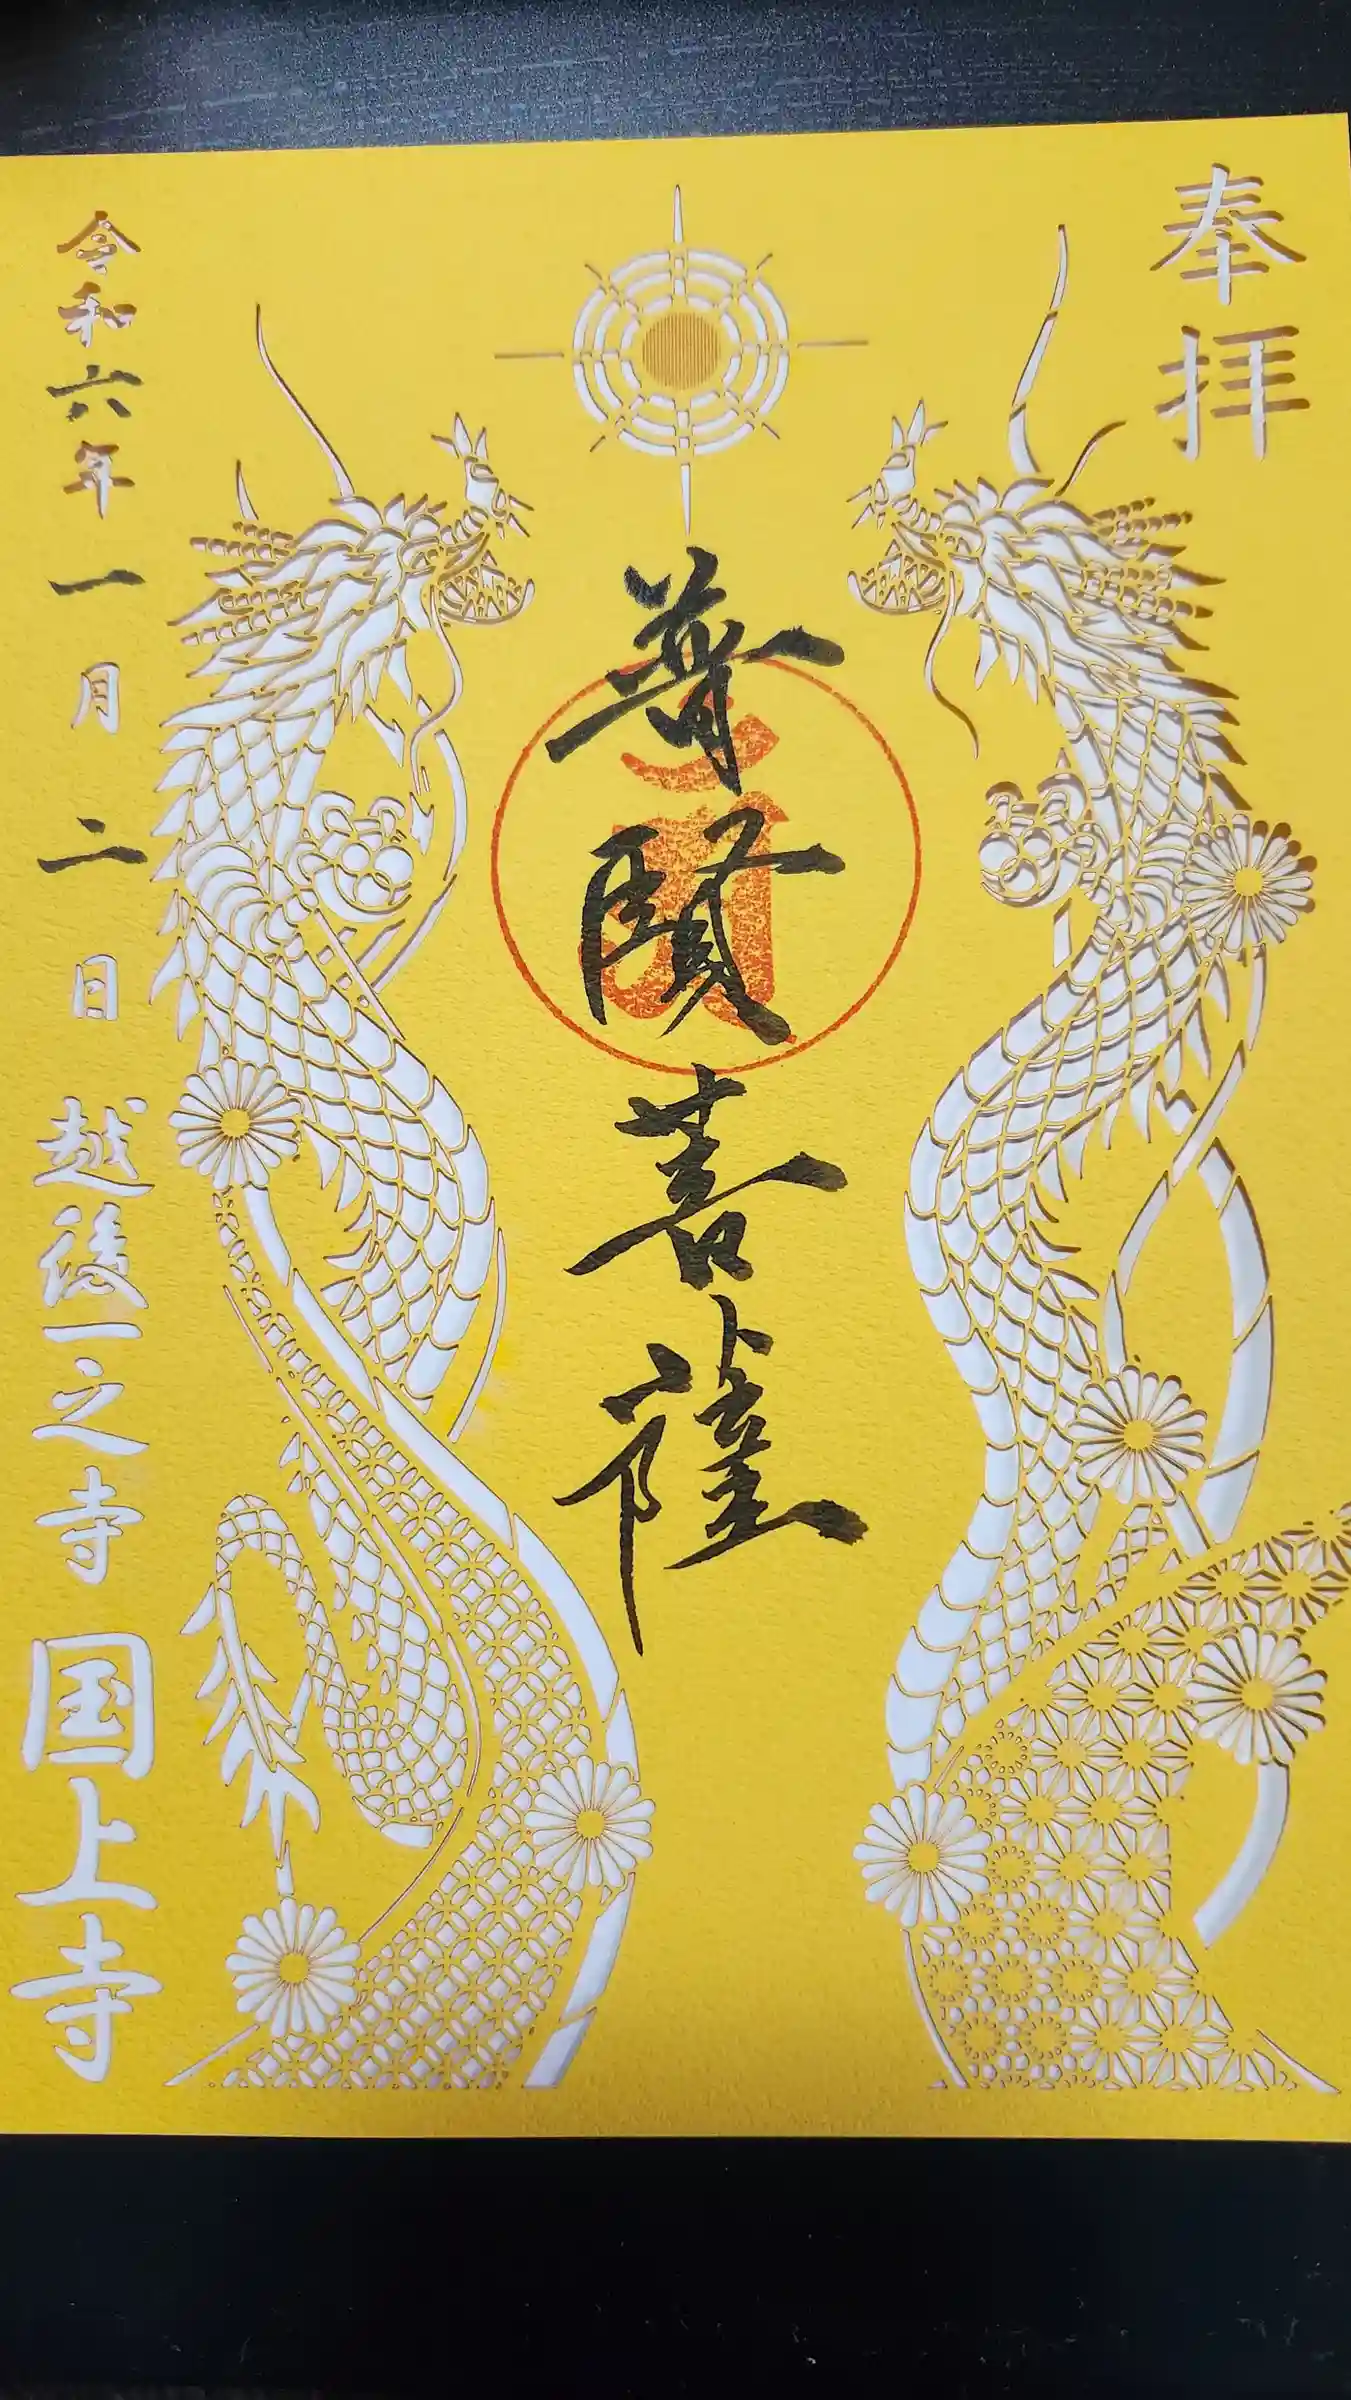 奉拝
普賢菩薩
令和六年一月二日
越後一之寺 国上寺